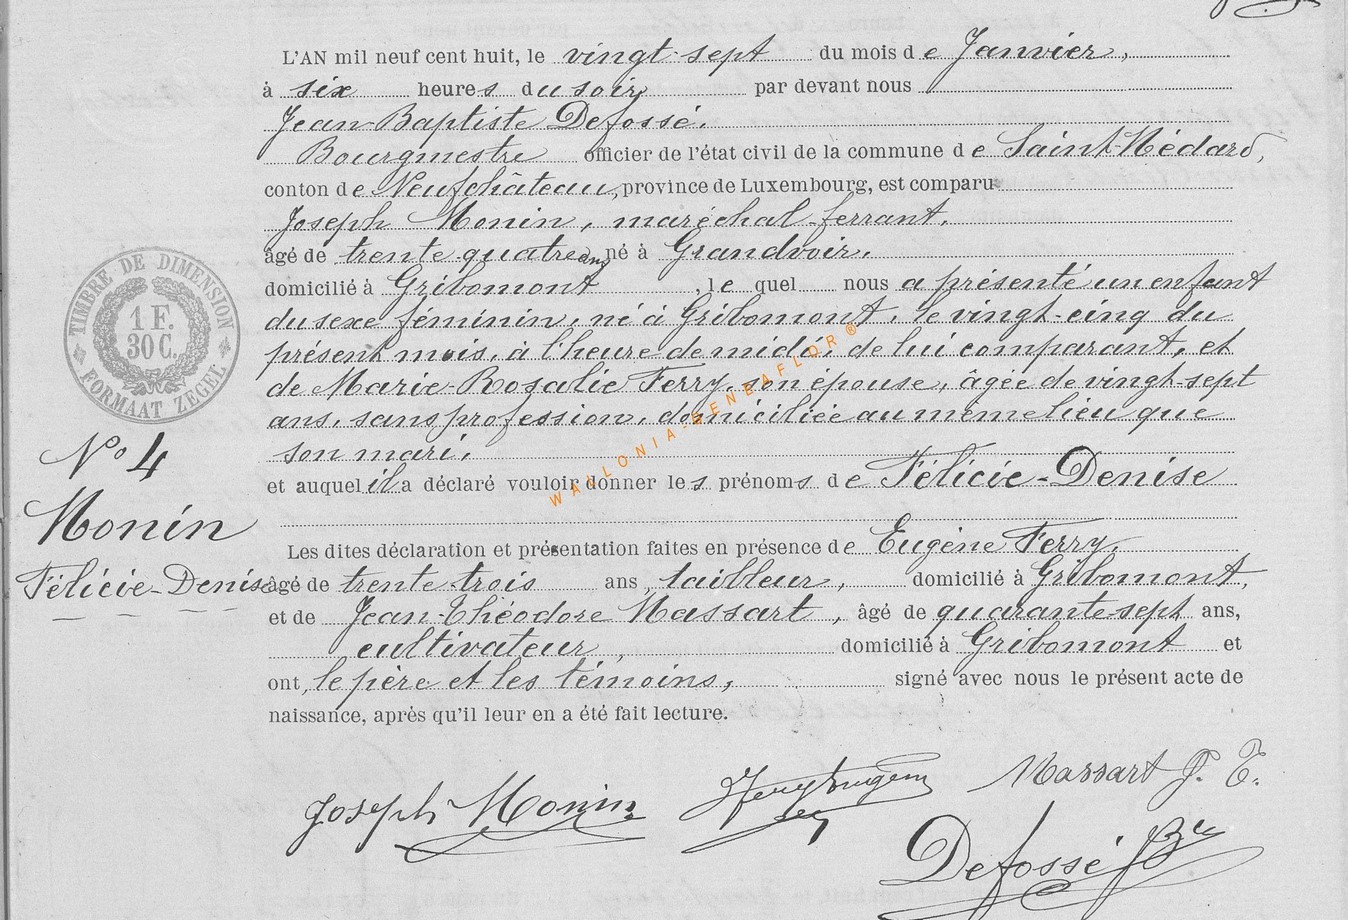 L'AN mil neuf cent huit, le vingt-sept du mois de Janvier,
à six heures du soir par devant nous
Jean-Baptiste Defossé,
Bourgmestre officier de l'état civil de la commune de Saint-Médard,
conton de Neufchâteau, province de Luxembourg, est comparu
Joseph Monin, maréchal-ferrant,
âgé de trente-quatre ans né à Grandvoir,
domicilié à Gribomont, le quel nous a présenté un enfant
du sexe féminin, né à Gribomont, le vingt-cinq du
présent mois, à l'heure de midi, de lui comparant, et
de Marie-Rosalie Ferry, son épouse, âgée de vingt-sept
ans, sans profession, domiciliée au même lieu que
son mari,
et auquel il a déclaré vouloir donner les prénoms de Félicie-Denise
Les dites déclaration et présentation faites en présence de Eugène Ferry,
âgé de trente trois ans, tailleur, domicilié à Gribomont,
et de Jean-Théodore Massart, âgé de quarante-sept ans,
cultivateur, domicilié à Gribomont et
ont, le père et les témoins, signé avec nous le présent acte de
naissance, après qu'il leur en a été fait lecture.
TIMBRE DE DIMENSION
1 F.
30 C.
FORMAAT ZEGEL
N° 4
Monin
Félicie-Denise
WALLONIA-GENEAFLOR®
Joseph Monin
Ferry Eugène
Massart J. T.
Defossé J Bte